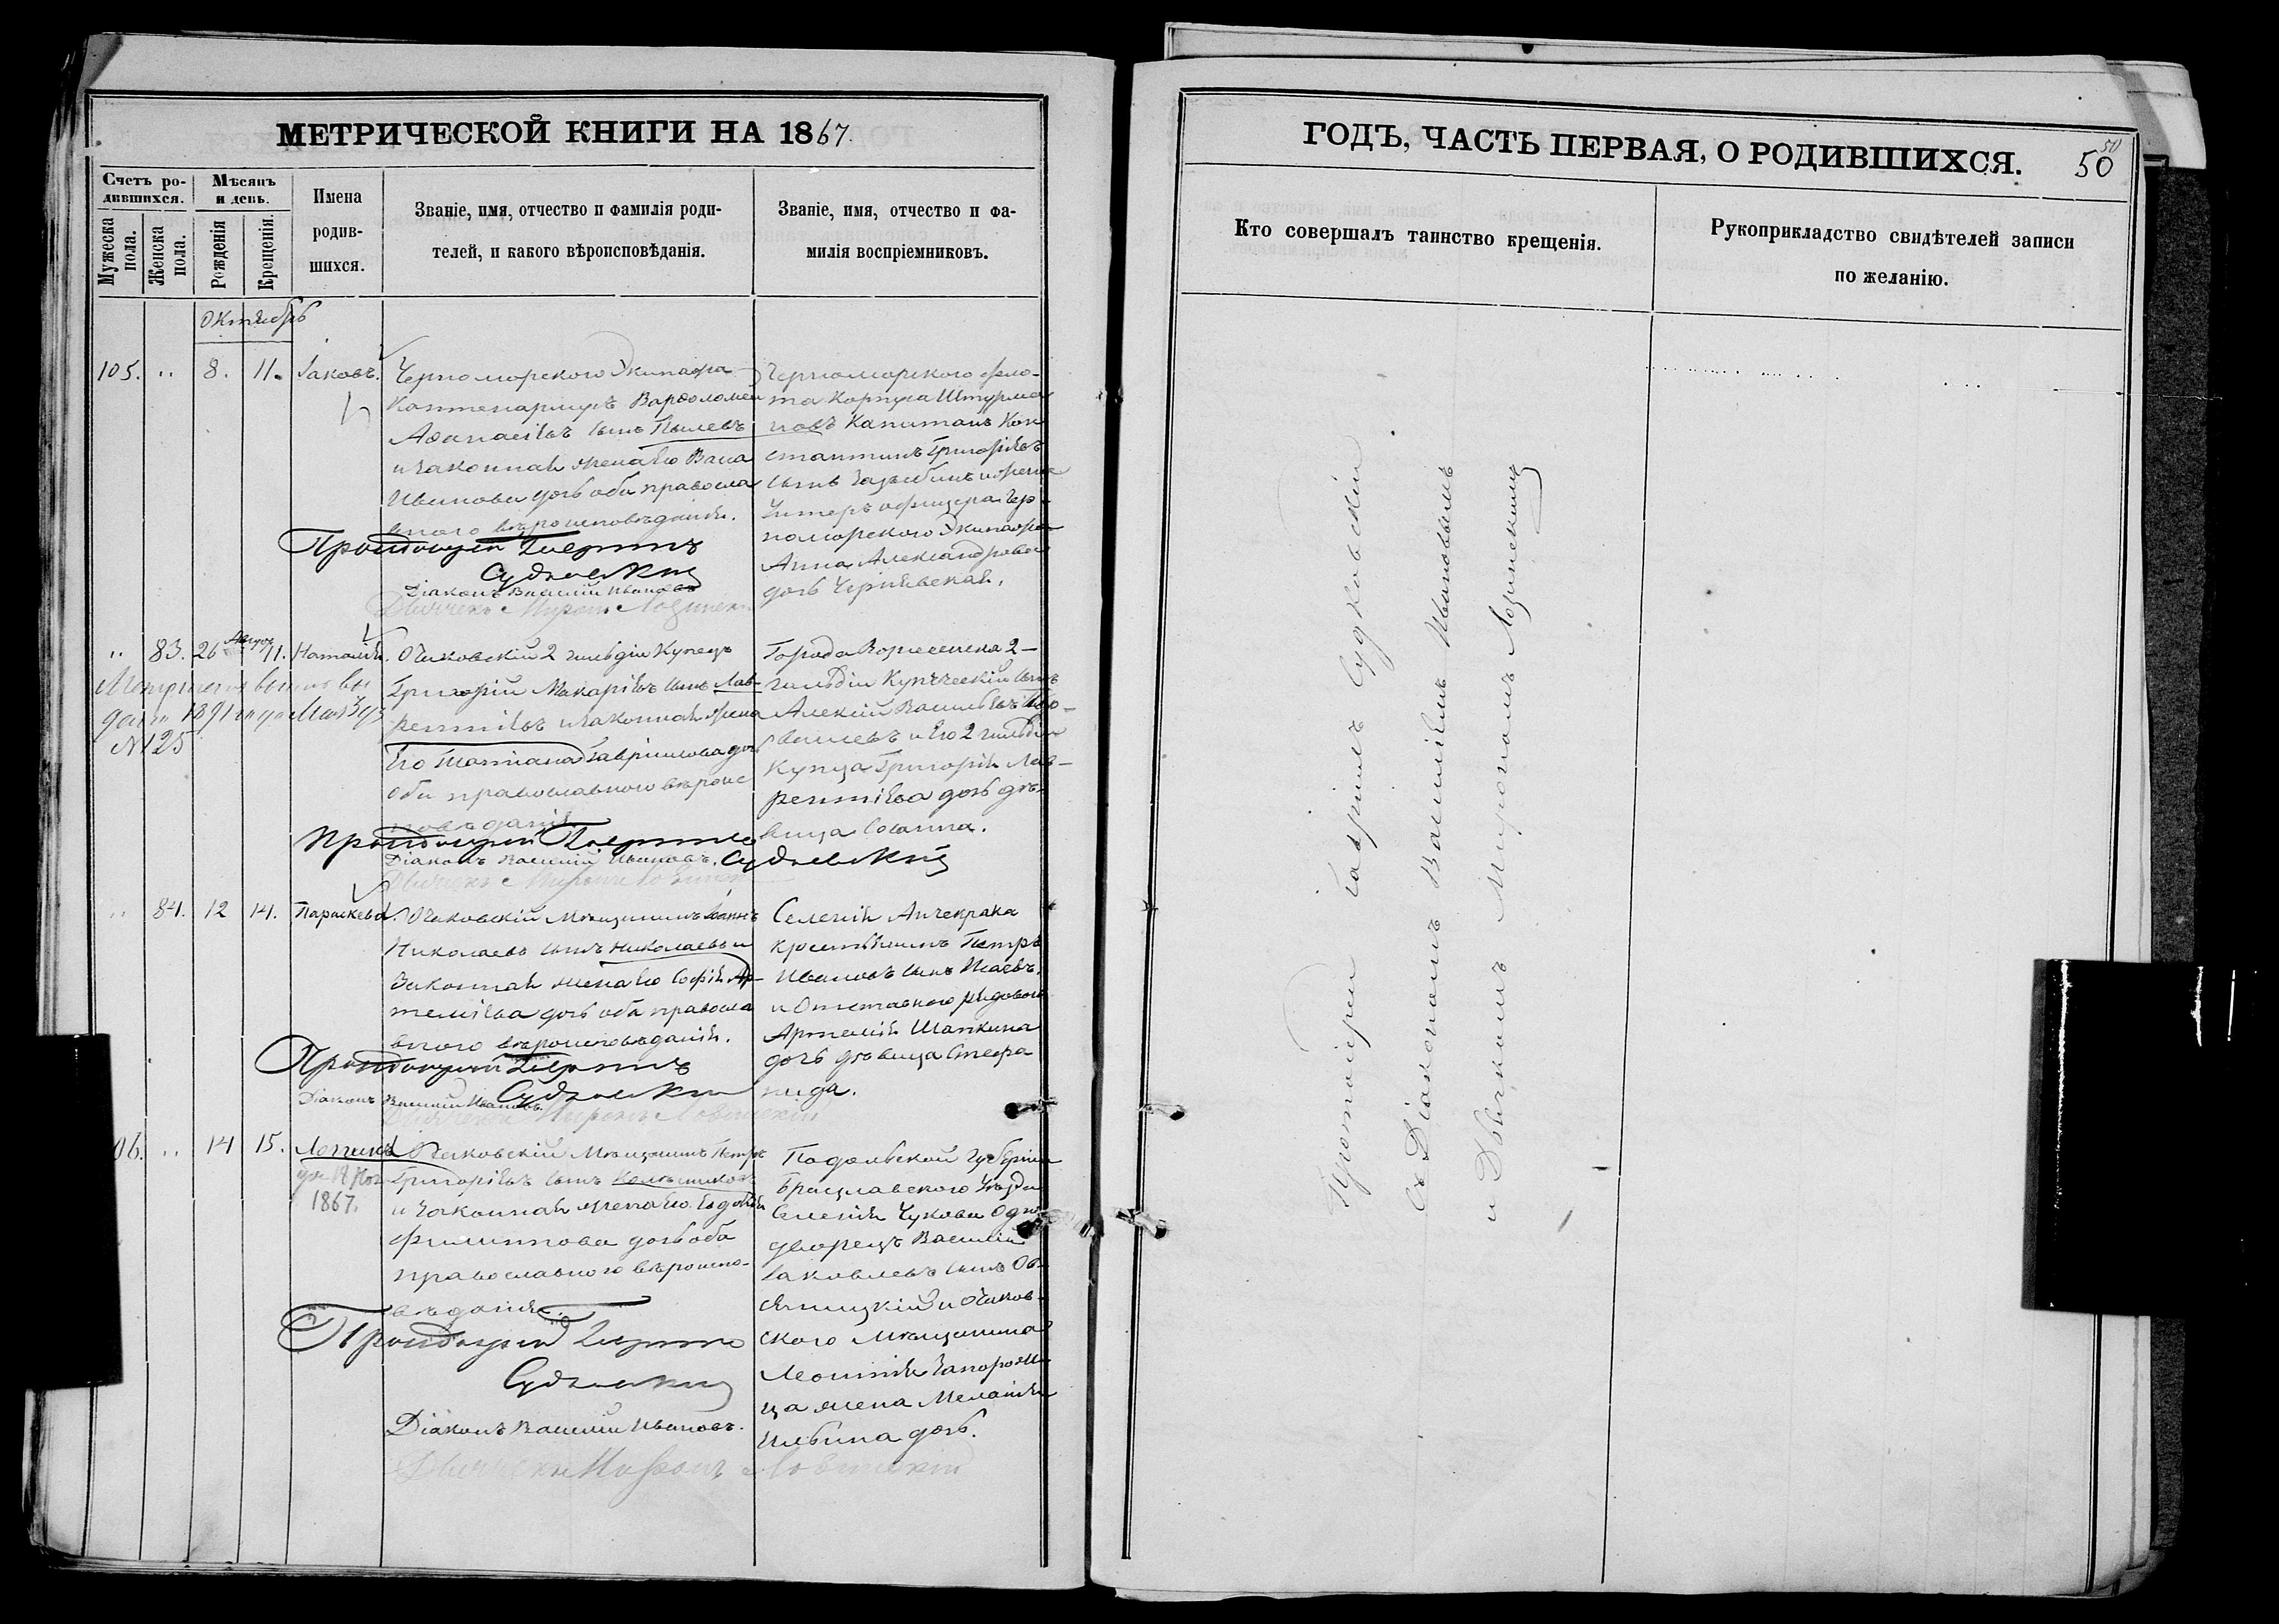 МЕТРИЧЕСКОЙ КНИГИ НА 1867.
Счетъ ро-
дившихся.
Мѣсяцъ
и день.
Мужеска
пола.
Женска
пола.
Рожденія
Крещенія.
Имена
родив-
шихся.
Званіе, имя, отчество и фамилія роди-
телей, и какого вѣроисповѣданія.
Званіе, имя, отчество и фа-
милія воспріемниковъ.
Октябрь
105. „ 8. 11. Іаковъ.
Черноморского Экипажа
Контенармусъ Варѳоломей
Аѳанасіевъ сынъ Пылевъ
и законная жена его Васса
Иванова дочь оба православ
ного вѣроисповѣданія.
Протоіерей Гавріилъ
Судковскій
Діаконъ Василій Ивановъ
Дьячекъ Миронъ Лозинскій
Черноморского фло-
та Корпуса Штурма
новъ Капитанъ Кон
стантинъ Григоріевъ
сынъ и жена
Унтеръ офицера Чер
номорского Экипажа
Анна Александрова
дочь Чернявская.
„ 83. 26 Август 11. Наталія.
Метрическ вып вы
дана 1891 года Мая 3 дня
№ 125
Очаковскій 2 гильдіи Купецъ
Григорій Макаріевъ сынъ Лав-
рентіевъ и законная жена
Его Татіана Гавріилова дочь
оба православного вѣроис
повѣданія
Протоіерей Гавріилъ
Діаконъ Василій Ивановъ. Судковскій
Дьячекъ Миронъ Лозинскій
Города Вознесенска 2-
гильдіи Купеческій сынъ
Алексій Васильевъ
и Его 2 гильдіи
Купца Григорія Лав-
рентіева дочь дѣ-
вица Іоанна.
„ 84. 12 14. Параскева.
Очаковскій Мѣщанинъ Іоаннъ
Николаевъ сынъ Николаевъ и
Законная жена его Софія Ар-
теміева дочь оба православ
ного вѣроисповѣданія.
Протоіерей Гавріилъ
Судковскій
Діаконъ Василій Ивановъ.
Дьячекъ Миронъ Лозинскій
Селенія Анчекрака
крестьянинъ Петръ
Ивановъ сынъ Исаевъ.
и Отставного рядового
Артемія Шапкина
дочь дѣвица Стефа
нида.
06. „ 14 15. Логинъ
ум 18 Ноя
1867.
Очаковскій Мѣщанинъ Петръ
Григоріевъ сынъ
и законная жена его Евдокія
Филиппова дочь оба
православного вѣроиспо-
вѣданія.
Протоіерей Гавріилъ
Судковскій
Діаконъ Василій Ивановъ.
Дьячекъ Миронъ Лозинскій
Подольской Губерніи
Брацлавского Уѣзда
Селенія Чукова Одно
дворецъ Василій
Іаковлевъ сынъ Ов-
сяницкій и Очаков-
ского Мѣщанина
Леонтія Запорож
ца жена Меланія
Ильина дочь.
ГОДЪ, ЧАСТЬ ПЕРВАЯ, О РОДИВШИХСЯ.
50
50
Кто совершалъ таинство крещенія.
Рукоприкладство свидѣтелей записи
по желанію.
Протоіерей Гавріилъ Судковскій
съ Діакономъ Василіемъ Ивановымъ
и Дьячкомъ Мирономъ Лозинскимъ